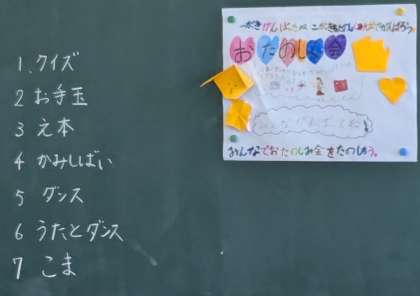 1、クイズ
2 お手玉
3 え本
4 かみしばい
5 ダンス
6 うたとダンス
7 こま
おたのしみ会
みんなでおたのしみ会をたのしもう。